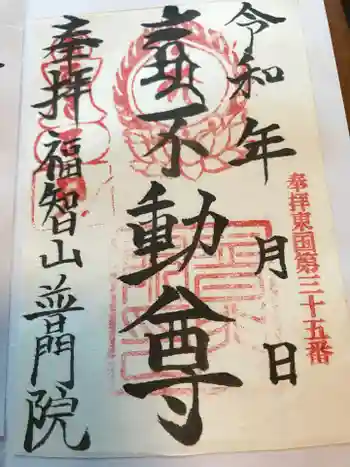 奉拝東国第三十五番
令和 年 月 日
不動尊
奉拝 福智山普門院